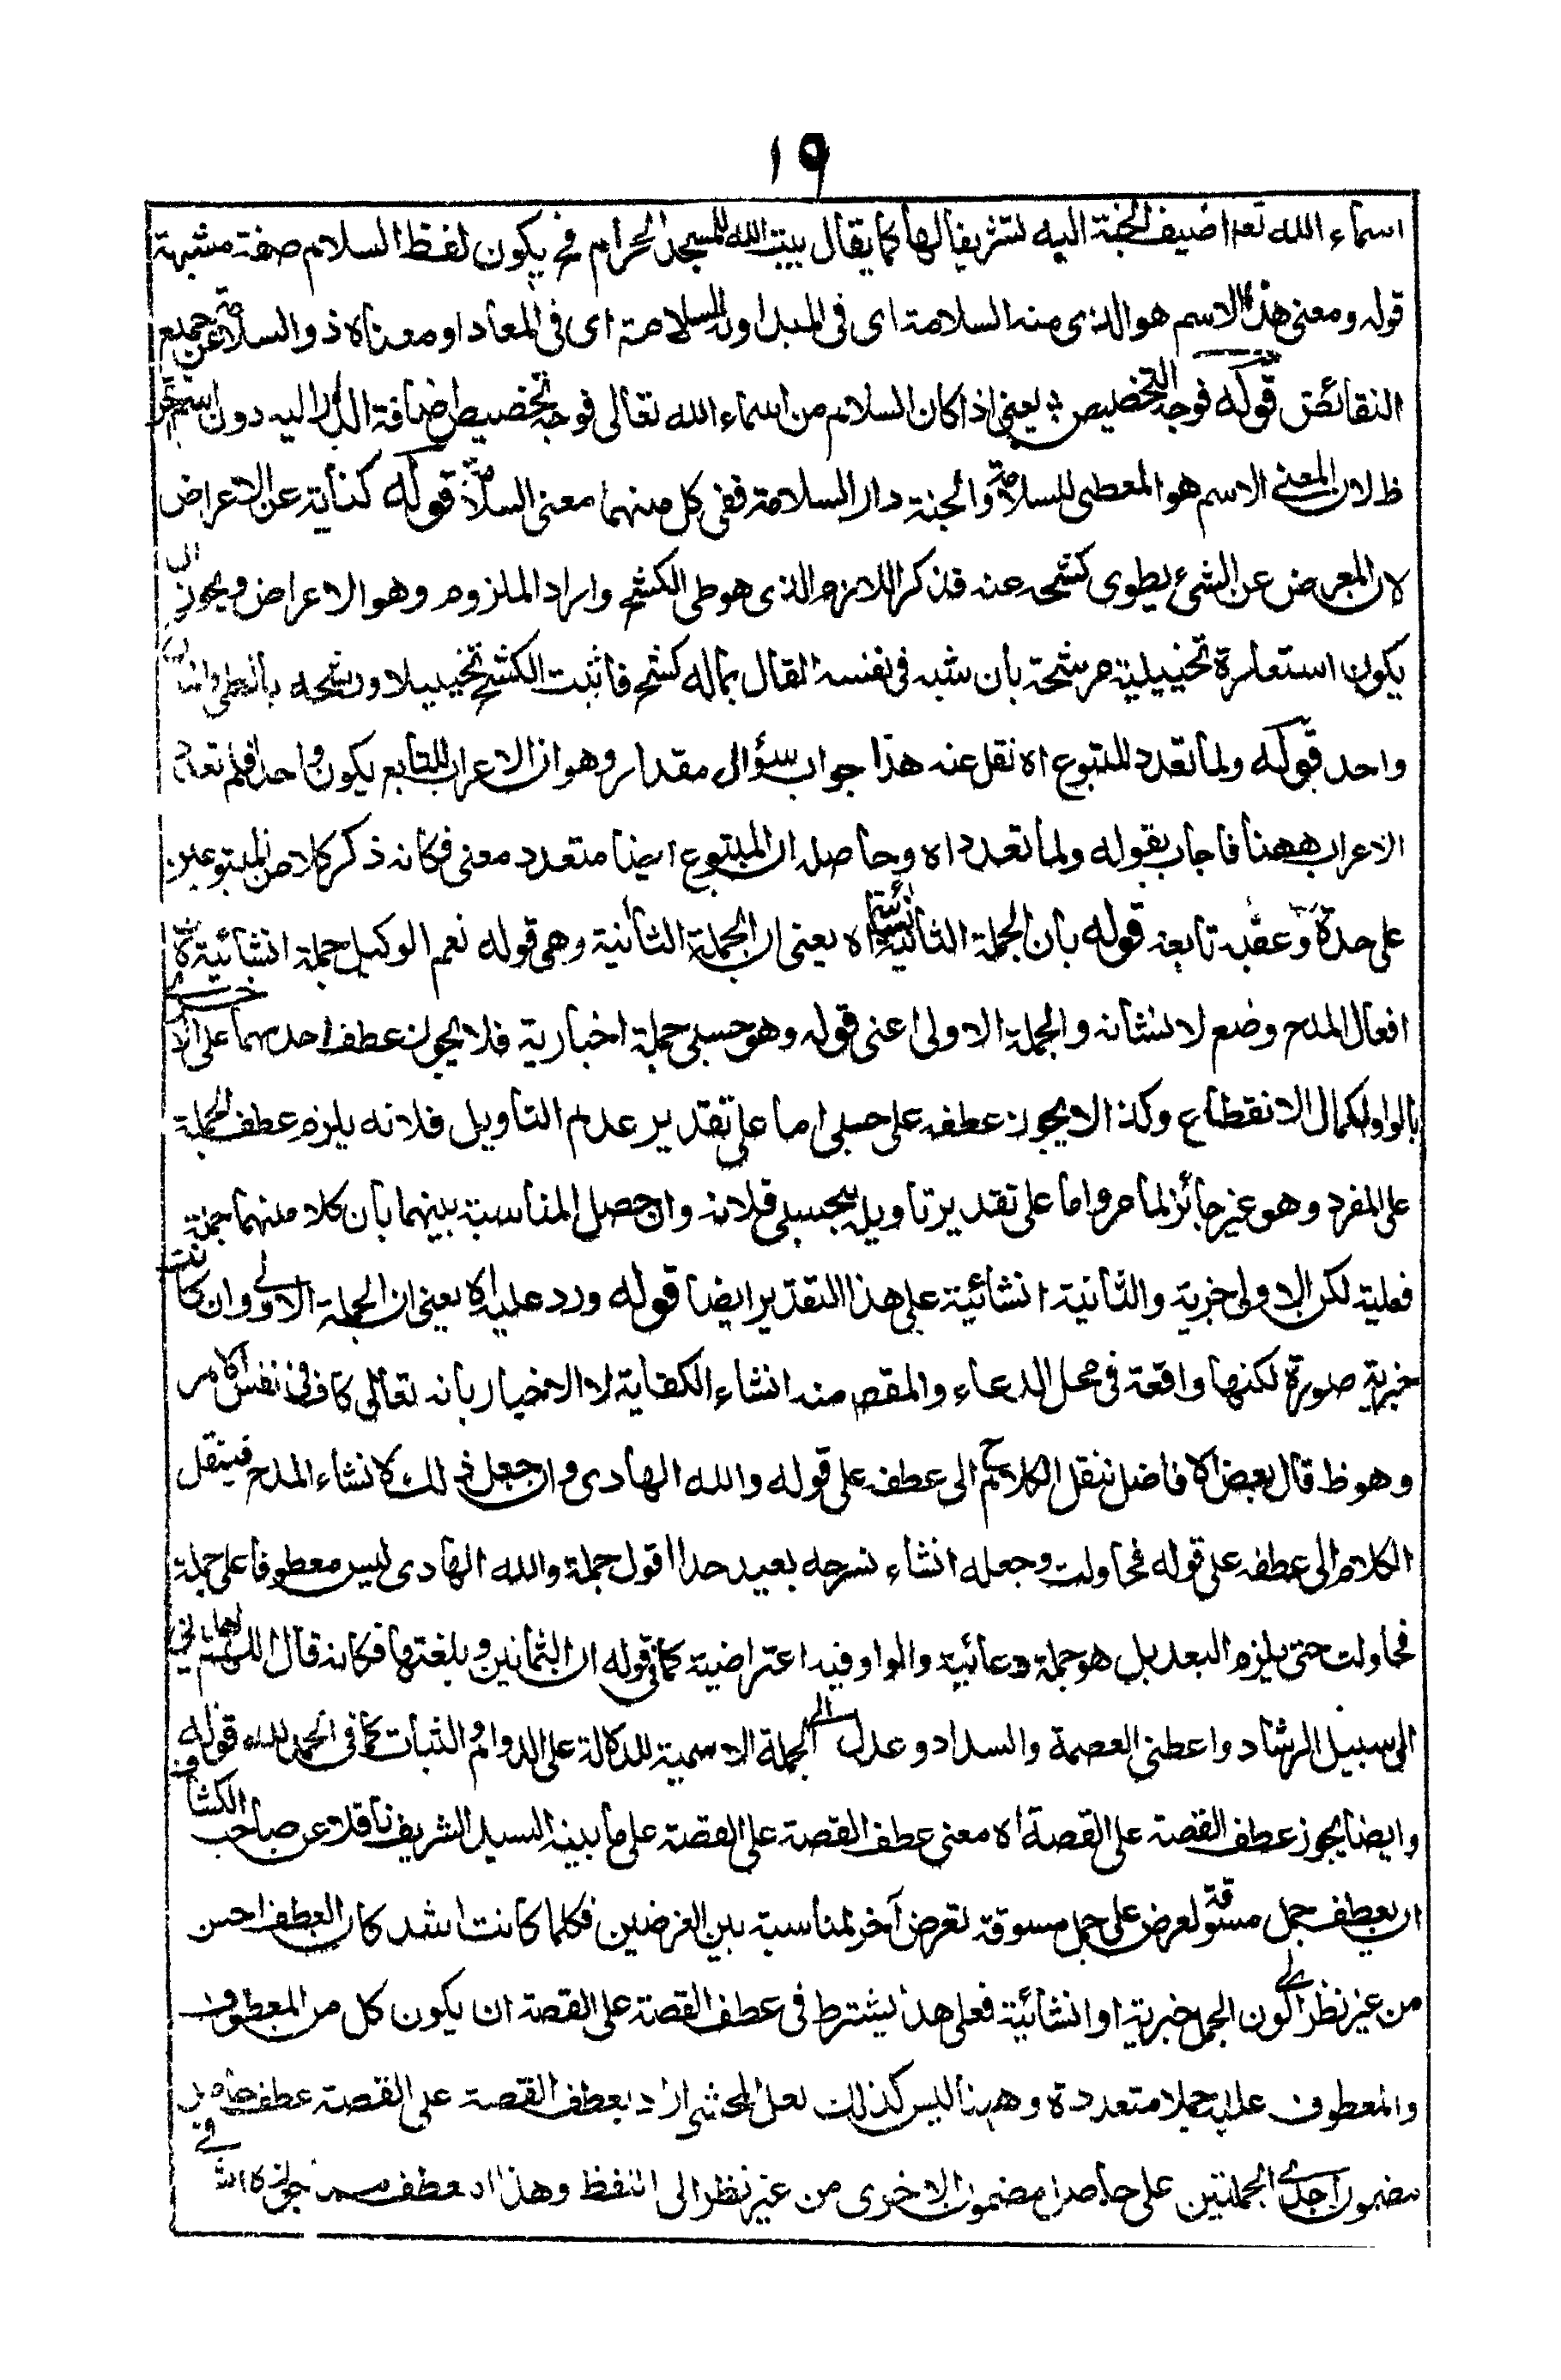 ١٩
اسماء الله تعا اضيف الجنة اليه لتشريفا لها كما يقال بيت الله للمسجد الحرام فح يكون لفظ السلام صفة مشبهة
قوله ومعنى هذا الاسم هو الذى منه السلامة اى فى المبدا وبه السلامة اى فى المعاد او معناه ذو السلامة عن جميع
النقائص قوله فوجه التخصيص يعنى اذا كان السلام من اسماء الله تعالى فوجه تخصيص اضافة الدار اليه دون اسم آخر
ظ لان المعنى الاسم هو المعطى للسلامة والجنة دار السلامة ففى كل منهما معنى السلامة قوله كناية عن الاعراض
لان المعرض عن الشئ يطوى كشحه عنه فذكر اللازم الذى هو طى الكشح واراد الملزوم وهو الاعراض ويجوز ان
يكون استعارة تخييلية مرشحة بان شبه فى نفسه المقال بما له كشح فاثبت الكشح تخييلا ورشحه بالطى
واحد قوله ولما تعدد المتبوع اه نقل عنه هذا جواب سؤال مقدر وهو ان الاعراب للتابع يكون واحدا فلم تعدد
الاعراب ههنا فاجاب بقوله ولما تعدد اه وحاصله ان المتبوع ايضا متعدد معنى فكانه ذكر كلا من المتبوعين
على حدة وعقبه تابعه قوله بان الجملة الثانية انشائية اه يعنى ان الجملة الثانية وهى قوله نعم الوكيل جملة انشائية لان
افعال المدح وضع لانشائه والجملة الاولى اعنى قوله وهو حسبى جملة اخبارية فلا يجوز عطف احدهما على الاخرى
بالواو لكمال الانقطاع وكذا لا يجوز عطفه على حسبى اما على تقدير عدم التاويل فلانه يلزم عطف الجملة
على المفرد وهو غير جائز لما مر واما على تقدير تاويله بيحسبنى فلانه وان حصل المناسبة بينهما بان كلا منهما جملة
فعلية لكن الاولى خبرية والثانية انشائية على هذا التقدير ايضا قوله ورد عليه اه يعنى ان الجملة الاولى وان كانت
خبرية صورة لكنها واقعة فى محل الدعاء والمقصد منه انشاء الكفاية لا الاخبار بانه تعالى كاف فى نفس الامر
وهو ظ قال بعض الافاضل ننقل الكلام ثم الى عطفه على قوله والله الهادى وان جعل ذلك لانشاء المدح فينقل
الكلام الى عطفه على قوله فحاولت وجعله انشاء نسرحه بعيد جدا اقول جملة والله الهادى ليس معطوفا على جملة
فحاولت حتى يلزم البعد بل هو جملة دعائية والواو فيه اعتراضية كما فى قوله ان الثمانين وبلغتها فكانه قال اللهم اهدنى
الى سبيل الرشاد واعطنى العصمة والسداد وعدل الى الجملة الاسمية للدلالة على الدوام والثبات كما فى الحمد لله قوله
وايضا يجوز عطف القصة على القصة اه معنى عطف القصة على القصة على ما بينه السيد الشريف ناقلا عن صاحب الكشاف
ان يعطف جمل مسوقة لغرض على جمل مسوقة لغرض آخر لمناسبة بين الغرضين فكلما كانت اشد كان العطف احسن
من غير نظر الى كون الجمل خبرية او انشائية فعلى هذا يشترط فى عطف القصة على القصة ان يكون كل من المعطوف
والمعطوف عليه جملا متعددة وههنا ليس كذلك لعل المحشى اراد بعطف القصة على القصة عطف حاصل
مضمون احدى الجملتين على حاصل مضمون الاخرى من غير نظر الى اللفظ وهذا العطف